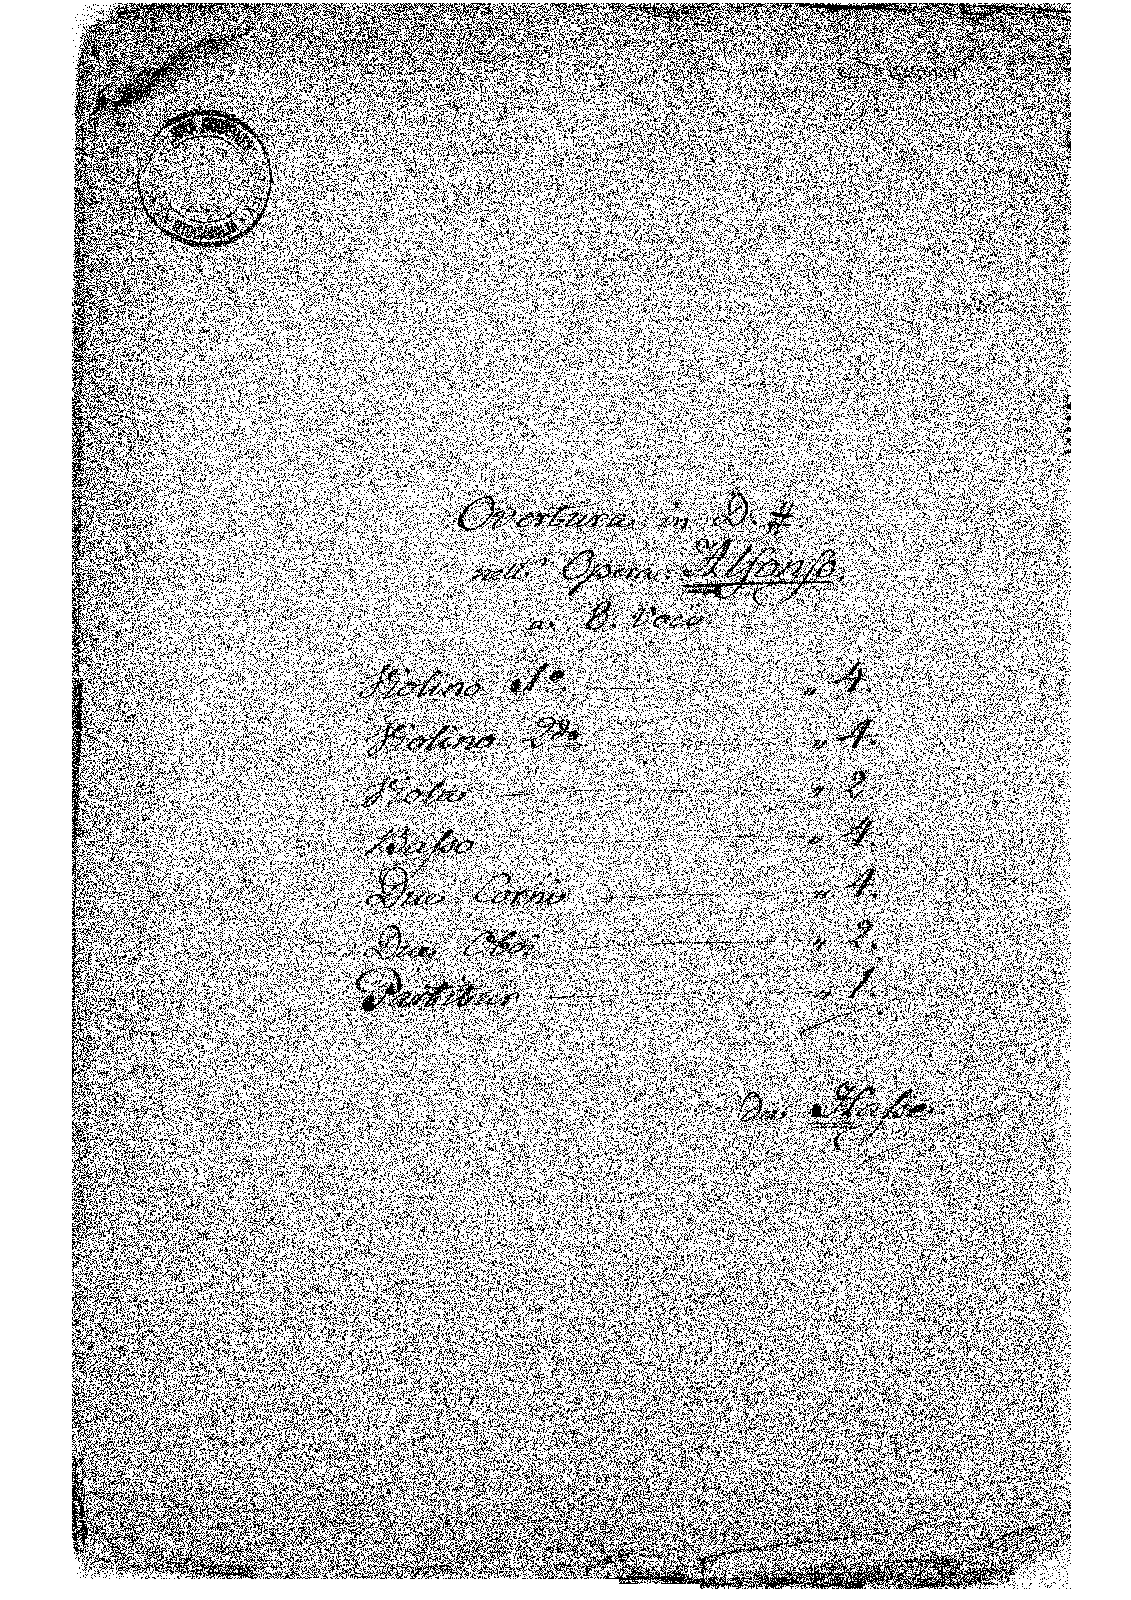 Overtura in D. #
nell' Opera. Alfonso.
a. 8. Voci
Violino 1º. „ 4.
Violino 2do „ 4.
Viola „ 2
Basso „ 4.
Due Corni „ 4.
Due Oboi „ 2.
Partitur „ 1.
Del Hasse.